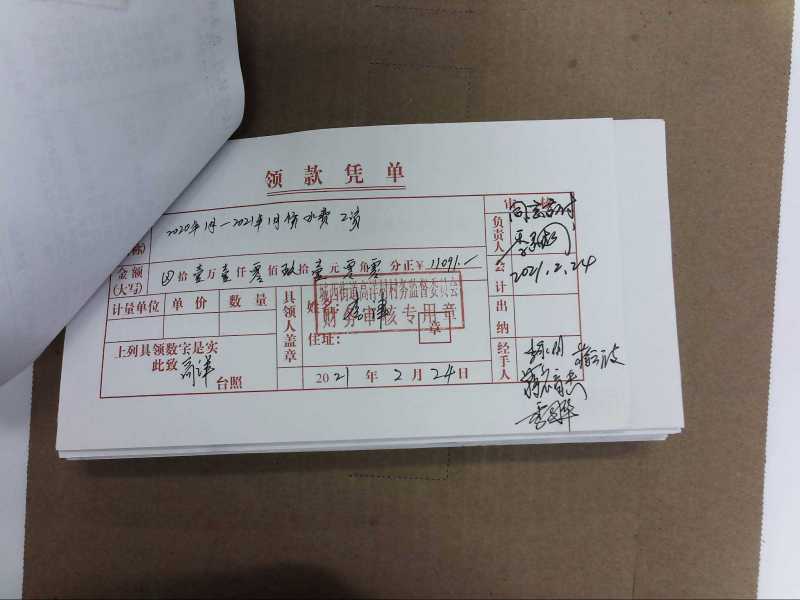 领款凭单
2020年1月—2021年1月份水费 工资
称)
金额
(大写)
拾壹万壹仟零佰玖拾壹元零角零分正¥11091.—
计量单位 单价 数量
上列具领数字是实
此致
台照
具领人盖章
姓名
城西街道高洋村村务监督委员会
财务审核专用章
章
住址:
2021年2月24日
审
同意支付
负责人
会计
2021.2.24
出纳
经手人